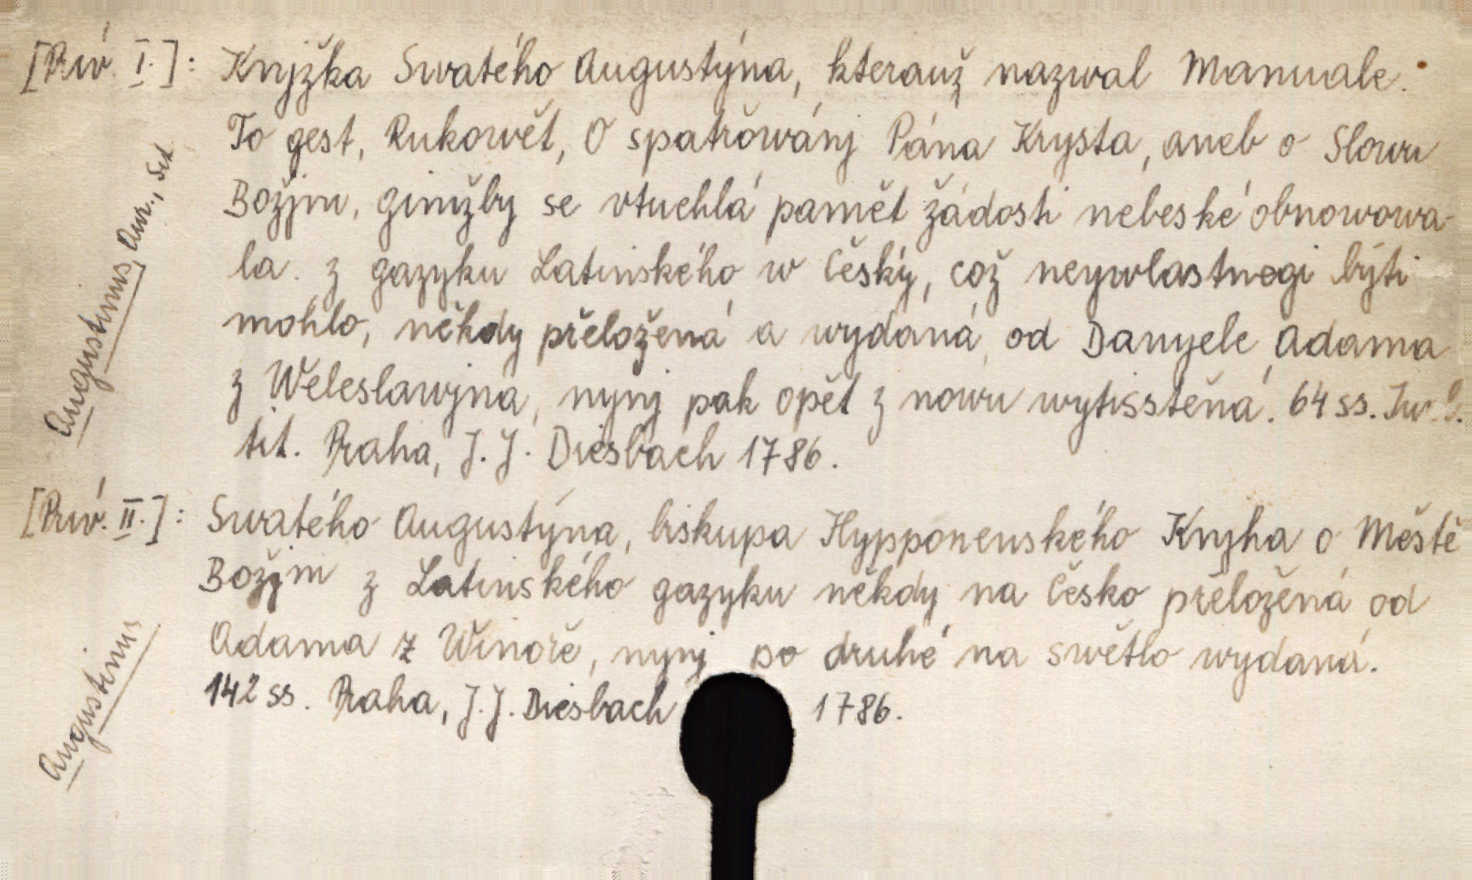 [Přív. I.]: Knjžka Swatého Augustýna, kterauž nazwal Manuale.
To gest, Rukowět, O spatřowánj Pána Krysta, aneb o Slowu
Božjm, gimžby se vtuchlá pamět žádosti nebeské obnowowa-
la. z gazyku Latinského w Český, což neywlastnegi býti
mohlo, někdy přeložená a wydaná od Danyele Adama
z Weleslawjna, nynj pak opět z nowu wytisstěná. 64 ss.
tit. Praha, J. J. Diesbach 1786.
Augustinus, Aur., Sct.
[Přív. II.]: Swatého Augustýna, biskupa Hypponenského Knjha o Městě
Božjm z Latinského gazyku někdy na Česko přeložená od
Adama z Winoře, nynj po druhé na swětlo wydaná.
142 ss. Praha, J. J. Diesbach 1786.
Augustinus